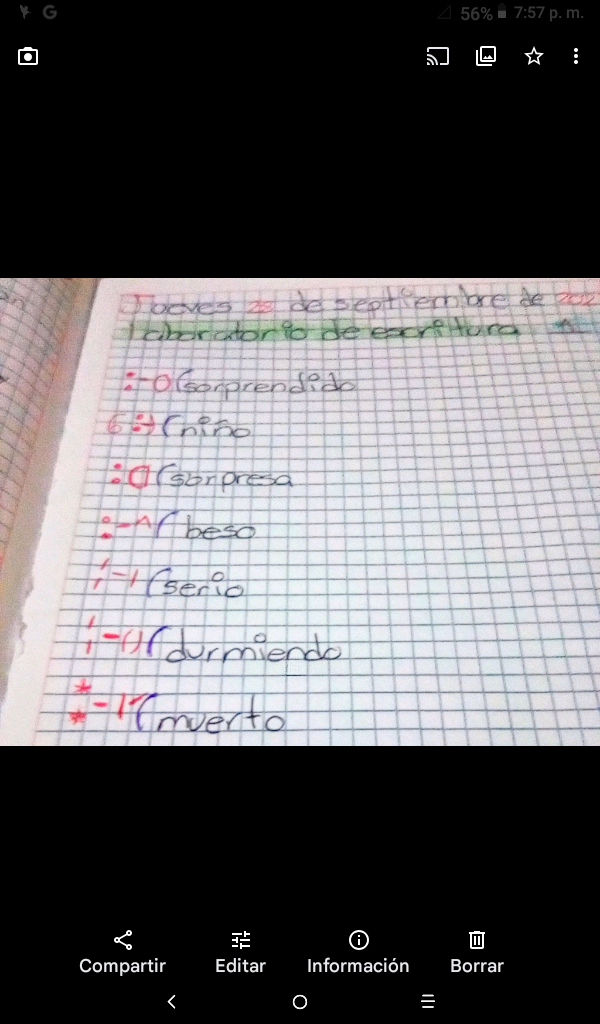 56% 7:57 p. m.
Jueves 28 de septiembre de 202
Laboratorio de escritura
:-O(sorprendido
6:-)(niño
:O(sorpresa
:-^(beso
¦-|(serio
¦-()(durmiendo
(muerto
Compartir Editar Información Borrar